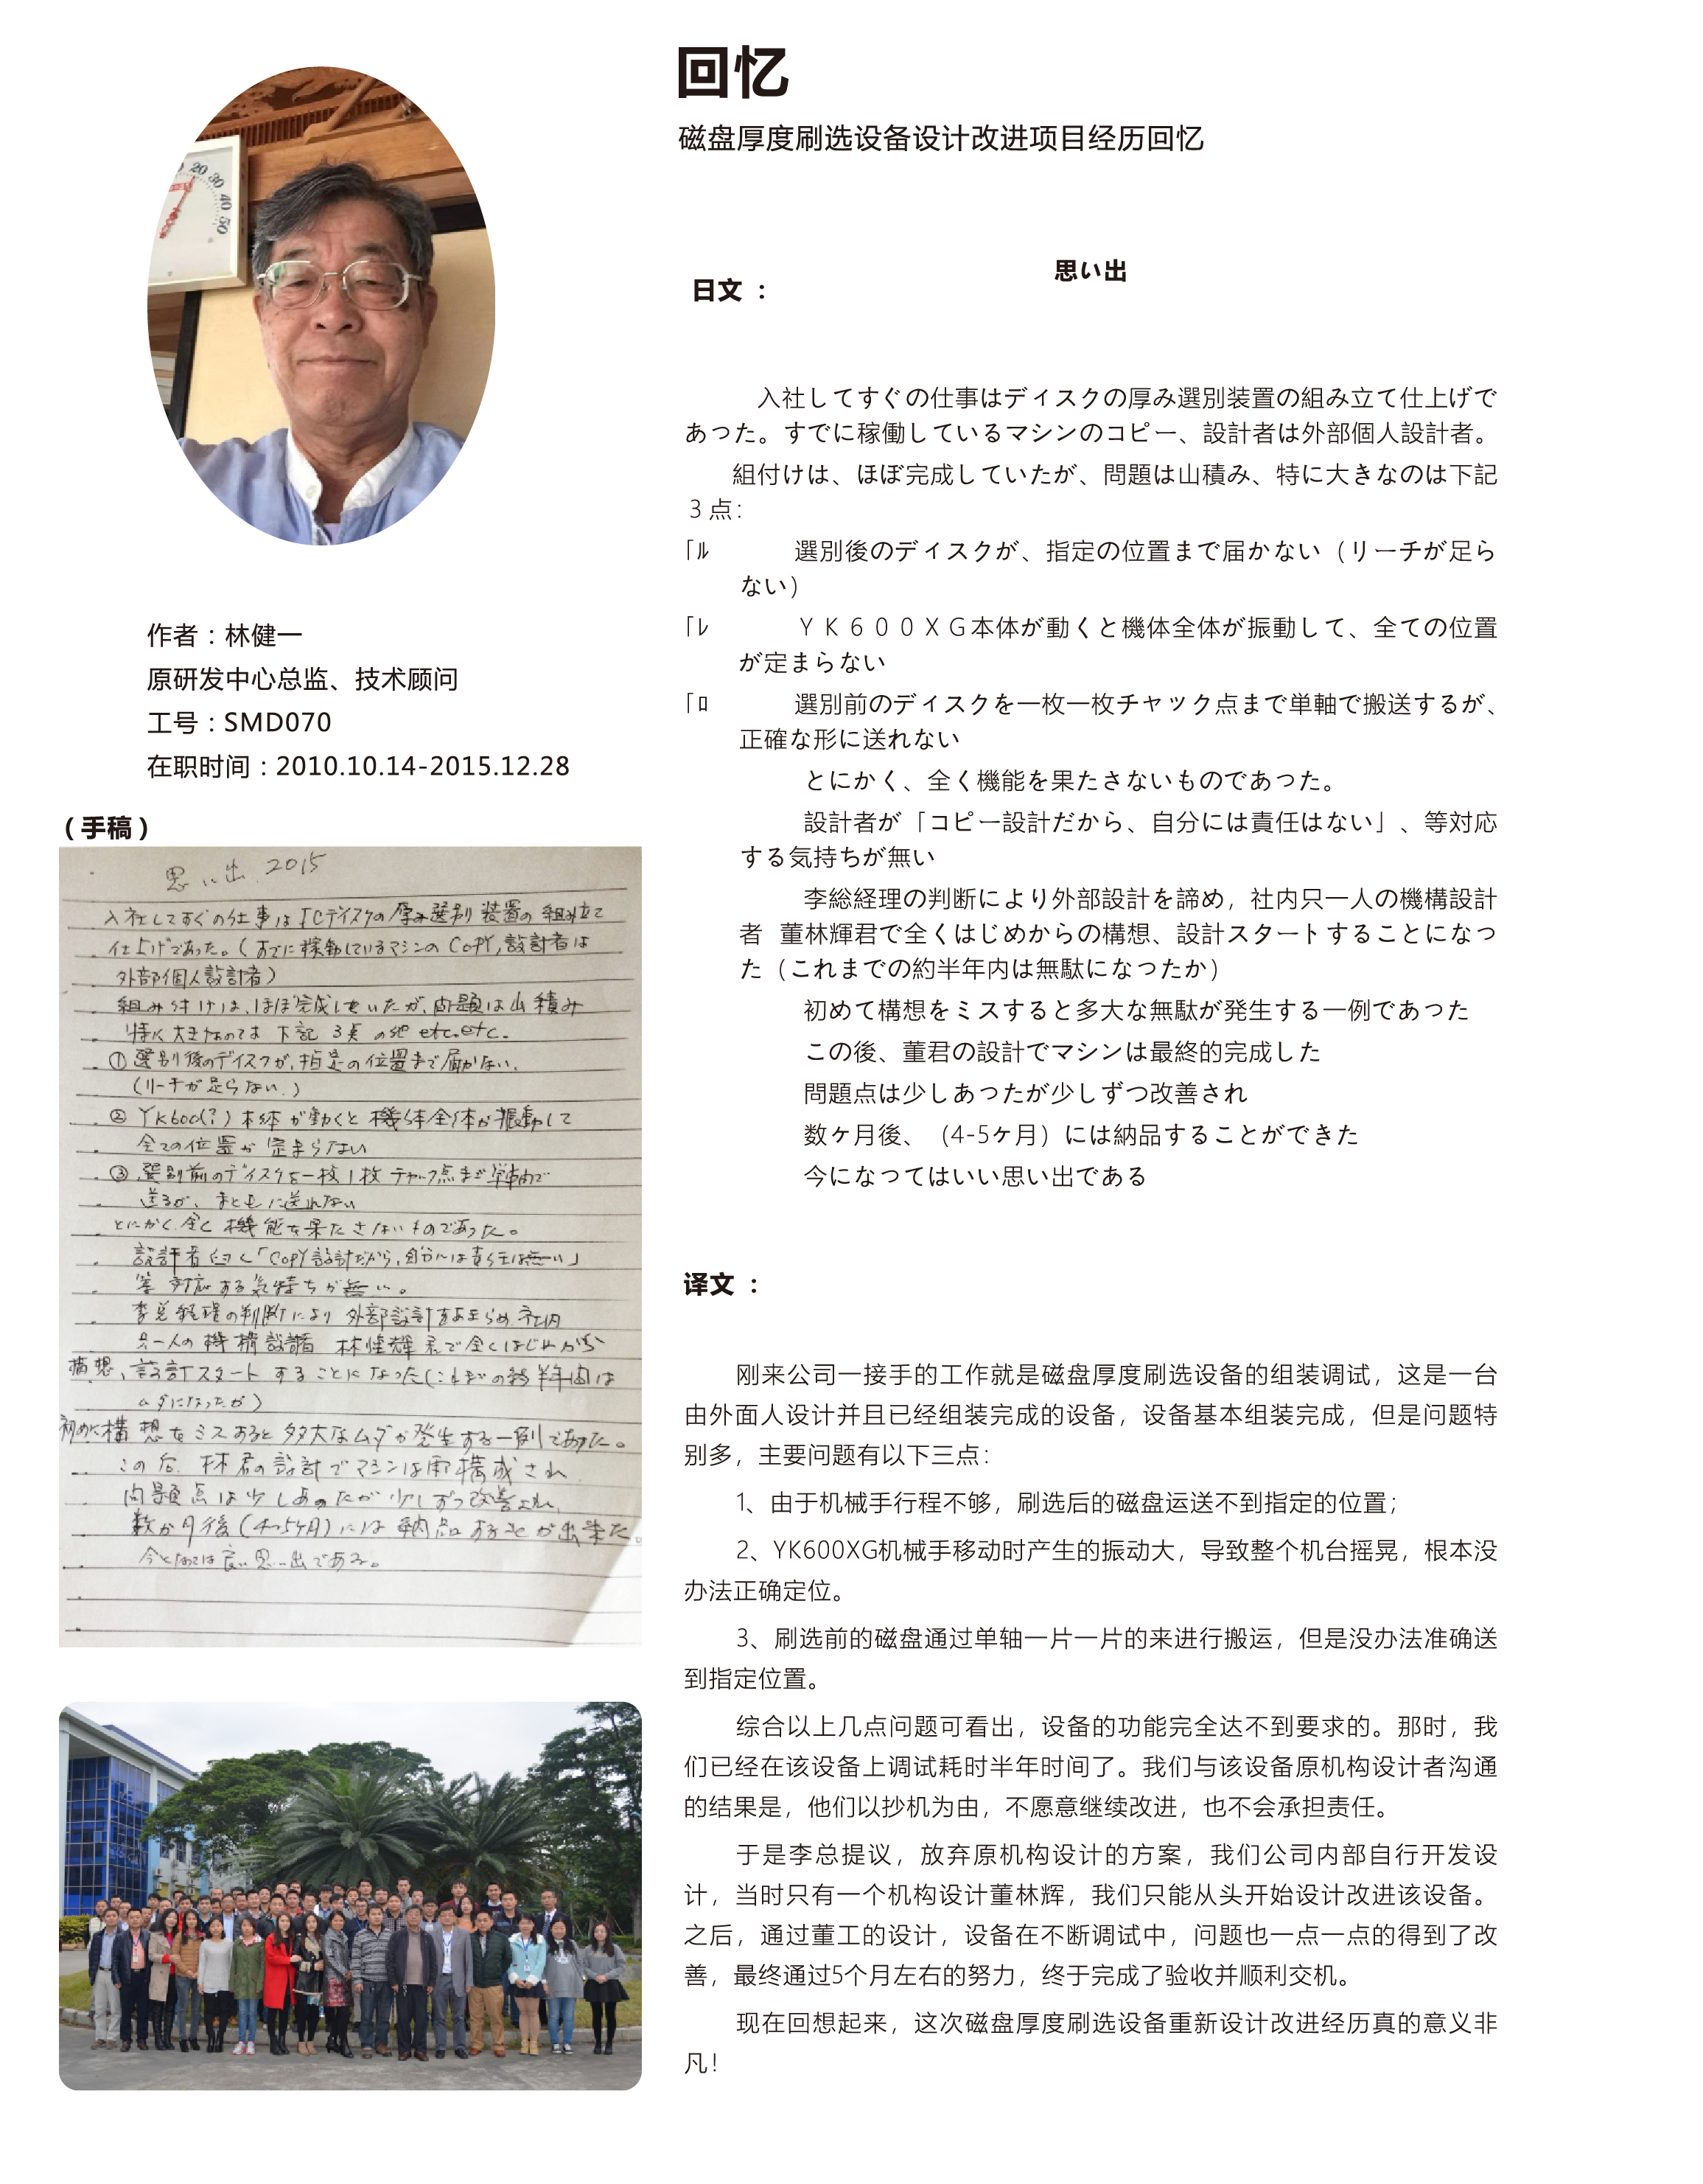 回忆
磁盘厚度刷选设备设计改进项目经历回忆
20 30 40 50
作者：林健一
原研发中心总监、技术顾问
工号：SMD070
在职时间：2010.10.14-2015.12.28
（手稿）
思い出 2015
入社してすぐの仕事は ディスクの厚み選別装置の組み立て
仕上げであった。(すでに稼動しているマシンの COPY, 設計者は
外部個人設計者)
組み付けは、ほぼ完成していたが、問題は山積み
特に大きなのは 下記 3点 の他 etc.etc.
① 選別後のディスクが、指定の位置まで届かない、
(リーチが足らない.)
② YK600(?) 本体が動くと機体全体が振動して
全ての位置が定まらない
③ 選別前のディスクを一枚1枚チャック点まで単軸で
送るが、まともに送れない
とにかく、全く機能を果たさないものであった。
設計者曰く「COPY設計だから、自分には責任は無い」
等 対応する気持ちが無い。
李总経理の判断により 外部設計をあきらめ 社内
只一人の機構設計者 林輝君で全くはじめから
構想、設計スタートすることになった(これまでの約半年間は
ムダになったが)
初めに構想をミスすると多大なムダが発生する一例であった。
この后、林君の設計でマシンは再構成され
問題点は少しあったが少しずつ改善され、
数か月後(4〜5ヶ月)には納品する事が出来た。
今となっては良い思い出である。
日文 ：
思い出
入社してすぐの仕事はディスクの厚み選別装置の組み立て仕上げで
あった。すでに稼働しているマシンのコピー、設計者は外部個人設計者。
組付けは、ほぼ完成していたが、問題は山積み、特に大きなのは下記
３点：
｢ﾙ 選別後のディスクが、指定の位置まで届かない（リーチが足ら
ない）
｢ﾚ ＹＫ６００ＸＧ本体が動くと機体全体が振動して、全ての位置
が定まらない
｢ﾛ 選別前のディスクを一枚一枚チャック点まで単軸で搬送するが、
正確な形に送れない
とにかく、全く機能を果たさないものであった。
設計者が「コピー設計だから、自分には責任はない」、等対応
する気持ちが無い
李総経理の判断により外部設計を諦め，社内只一人の機構設計
者 董林輝君で全くはじめからの構想、設計スタートすることになっ
た（これまでの約半年内は無駄になったか）
初めて構想をミスすると多大な無駄が発生する一例であった
この後、董君の設計でマシンは最終的完成した
問題点は少しあったが少しずつ改善され
数ヶ月後、（4-5ヶ月）には納品することができた
今になってはいい思い出である
译文 ：
刚来公司一接手的工作就是磁盘厚度刷选设备的组装调试，这是一台
由外面人设计并且已经组装完成的设备，设备基本组装完成，但是问题特
别多，主要问题有以下三点：
1、由于机械手行程不够，刷选后的磁盘运送不到指定的位置；
2、YK600XG机械手移动时产生的振动大，导致整个机台摇晃，根本没
办法正确定位。
3、刷选前的磁盘通过单轴一片一片的来进行搬运，但是没办法准确送
到指定位置。
综合以上几点问题可看出，设备的功能完全达不到要求的。那时，我
们已经在该设备上调试耗时半年时间了。我们与该设备原机构设计者沟通
的结果是，他们以抄机为由，不愿意继续改进，也不会承担责任。
于是李总提议，放弃原机构设计的方案，我们公司内部自行开发设
计，当时只有一个机构设计董林辉，我们只能从头开始设计改进该设备。
之后，通过董工的设计，设备在不断调试中，问题也一点一点的得到了改
善，最终通过5个月左右的努力，终于完成了验收并顺利交机。
现在回想起来，这次磁盘厚度刷选设备重新设计改进经历真的意义非
凡！